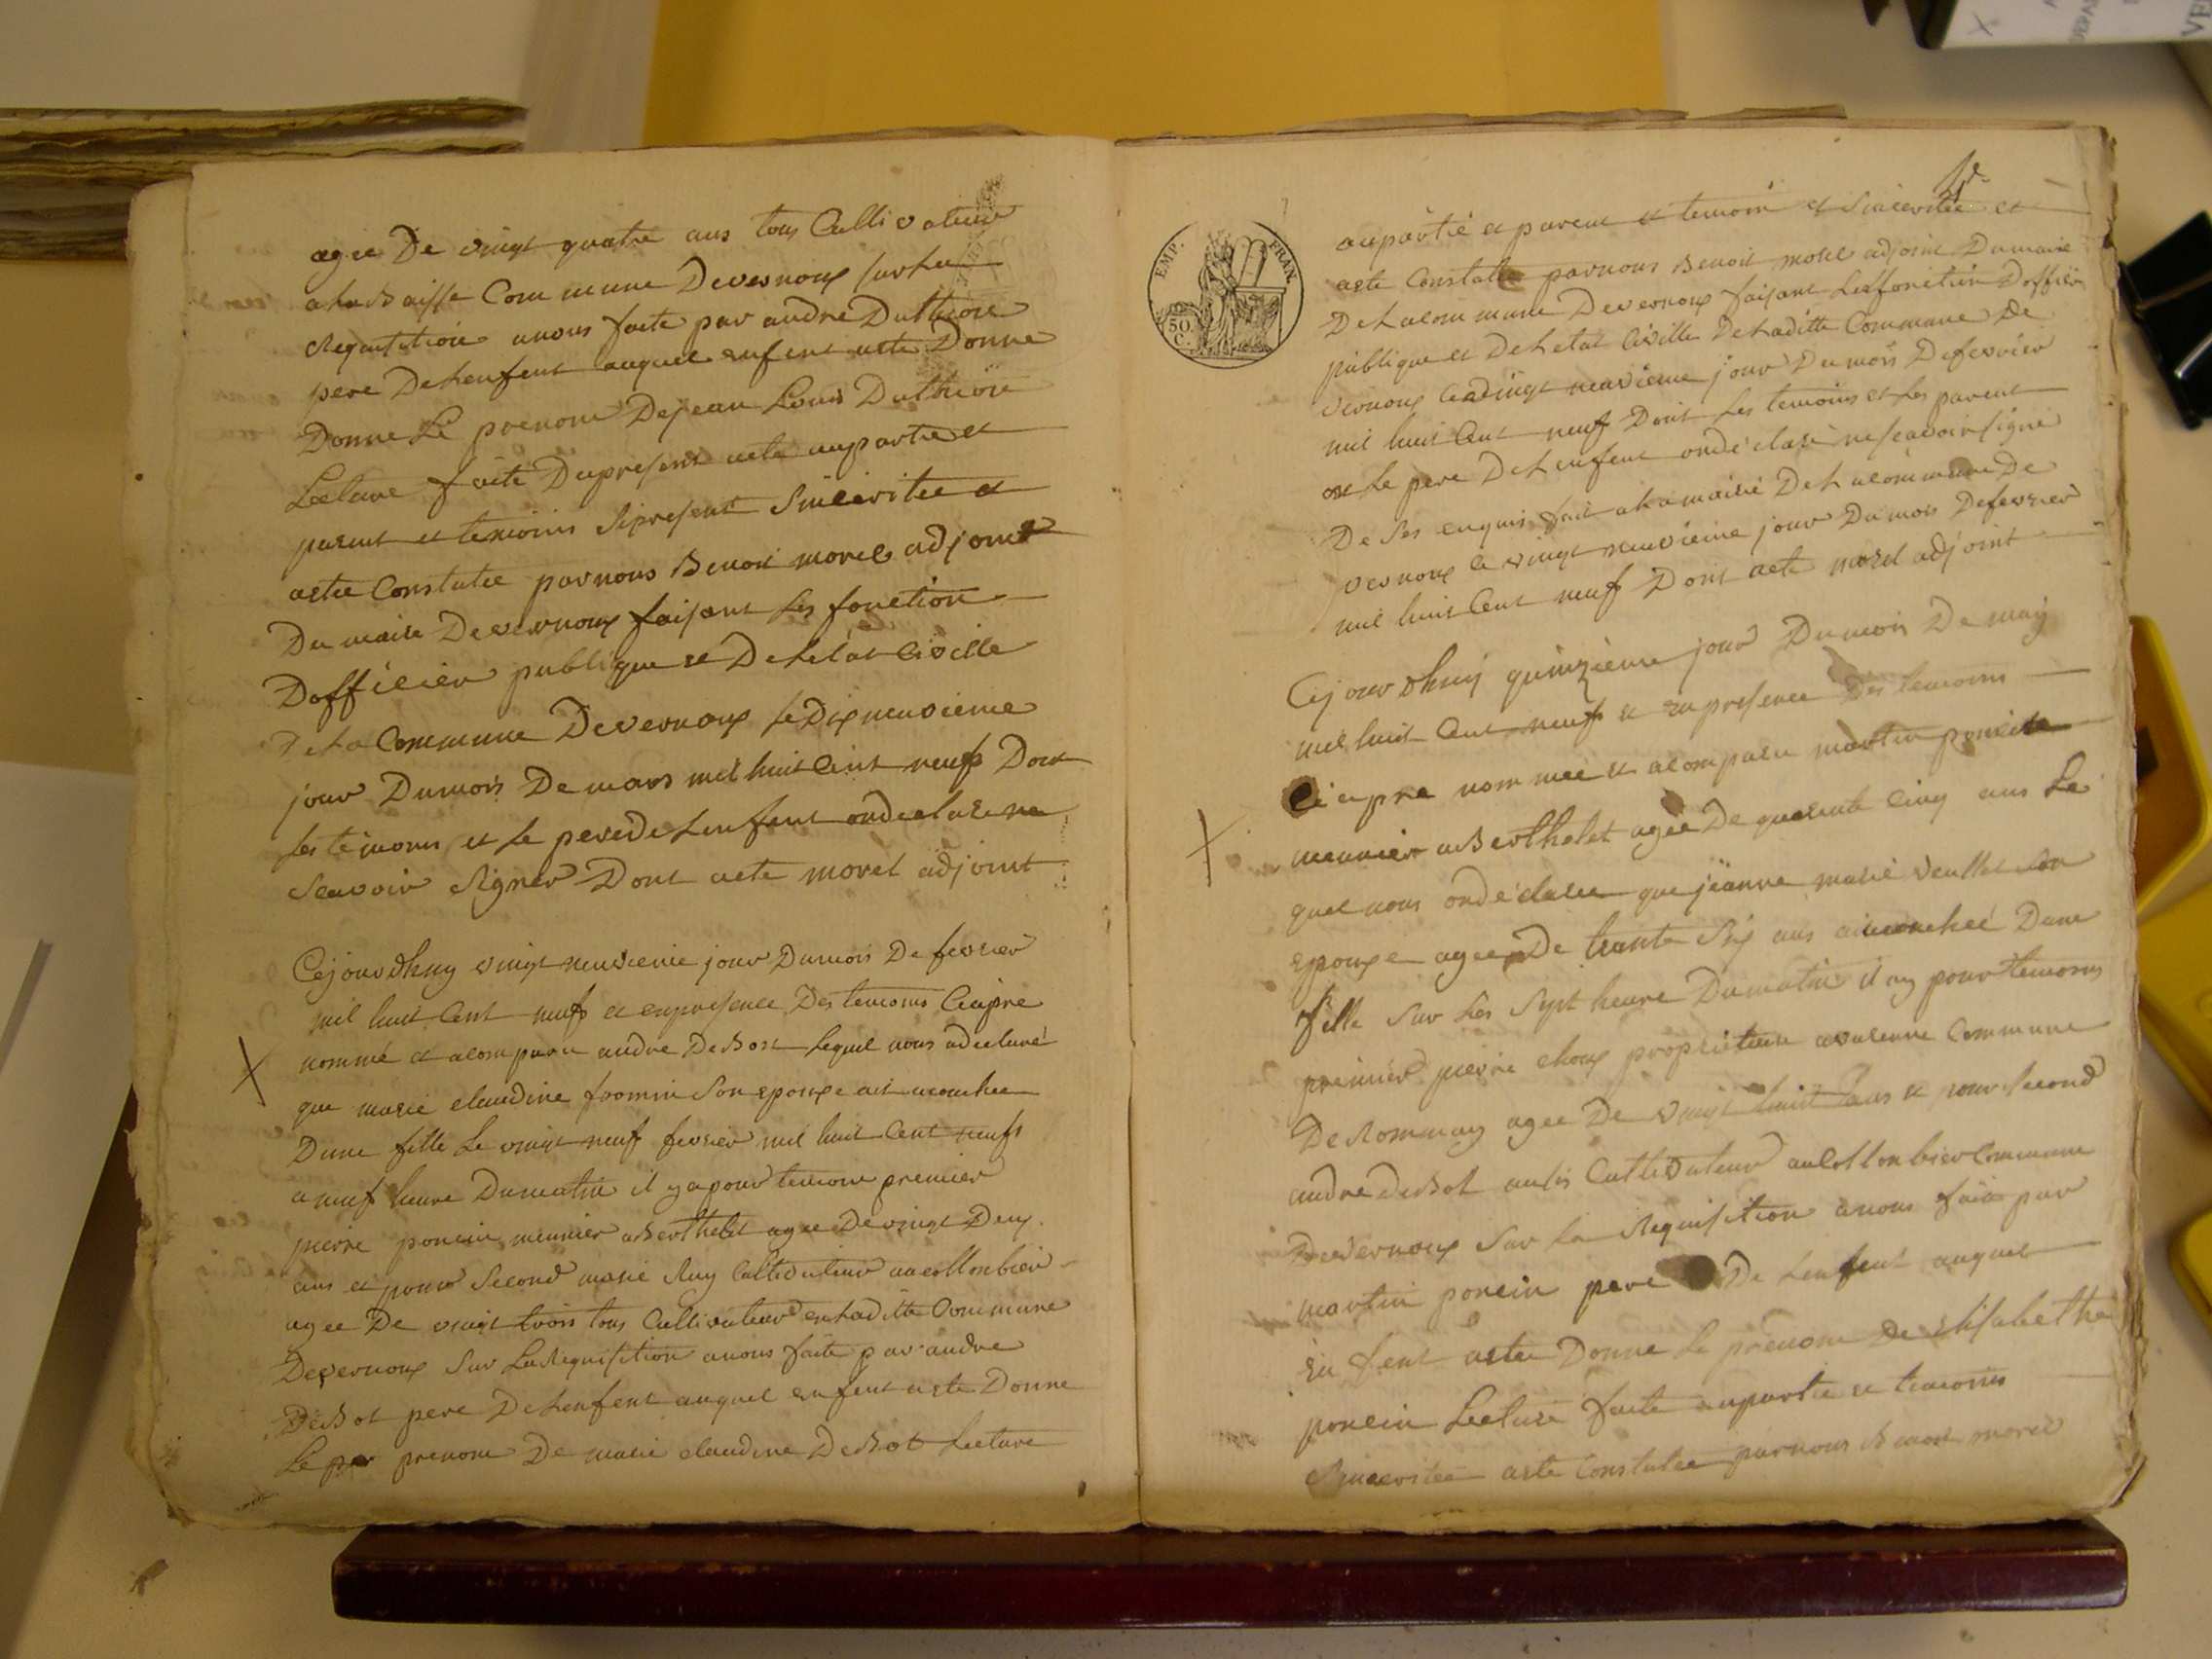 agée De vingt quatre ans tous Cultivateur
alabaisse Commune Devernoux surla
Requisition anous faite par andre Duthion
pere Delenfent auquel enfent aete Donne
Donne Le prenom Dejean Louis Duthion
Lecture faite Dupresent acte auparties et
parent et temoins Sipresent Sincéritee et
actee Constatee parnous Benoit morel adjoint
Dumaire Devernoux faisant Les fonction
Dofficier publique et Deletat Civille
Dela Commune Devernoux Ledixneuvieme
jour Dumois De mars mil huit Cent neufs Dont
Les temoins et Le perede Lenfent ondeclare ne
Scavoir Signer Dont acte morel adjoint
Cejourdhuy vingt neuvieme jour Dumois De fevrier
mil huit Cent neufs et enpresence Des temoins Ciapre
nommé et acomparu andre Debost Lequel nous adeclaré
que marie claudine froomin Son epouxe ait acouchee
Dune fille Le vingt neuf fevrier mil huit Cent neufs
a neuf heure Dumatin il yapour temoin premier
pierre poncin meunier aberthelet agee Devingt Deux
ans et pour Second marie Ruy Cultivateur aucollonbier
agee De vingt trois tous Cultivateur enladitte Commune
Devernoux Sur LaRequisition anous faite par andre
Debot pere Delenfent auquel enfent aete Donne
Le prenom De marie claudine Debot Lecture
EMP. FRAN.
50. C.
auparties et parent et temoin et Sincéritée et
acte Constatee parnous Benoit morel adjoint Dumaire
Delacommune Devernoux faisant Lesfonction Doffier
publique et Deletat Civille Deladitte Commune De
vernoux Levingt neuvieme jour Dumois Defevrier
mil huit Cent neuf Dont Les temoins et Les parent
Le pere Delenfent ondéclaré nescavoir signé
De Ses enquis fait alamairie Delacommune De
vernoux Le vingt neuvieme jour Dumois Defevrier
mil huit Cent neuf Dont acte morel adjoint
Cejourdhuy quinzieme jour Dumois De may
mil huit Cent neufs et enpresence Des temoins
Ciapre nommee et acomparu martin poncin
meunier aberthelet agée De quarente Cinq ans Le
quel nous ondéclaree que jeanne marie veullet son
epouxe agee De trante Six ans aiacouchéé Dune
fille Sur Les Sept heure Dumatin il ay pour temoins
premier pierre choux proprieteure avarenne Commune
DeRommnay agee De vingt huit ans et pour Second
andre debot aussi Cultivateur aucollonbier Commune
Devernoux Sur La Requisition anous fait par
martin poncin pere De Lenfent auquel
enfent aetee Donne Le prenom De elisabethe
poncin Lecture faite auparties et temoins
Sinceritee acte Constatee parnous Benoit morel